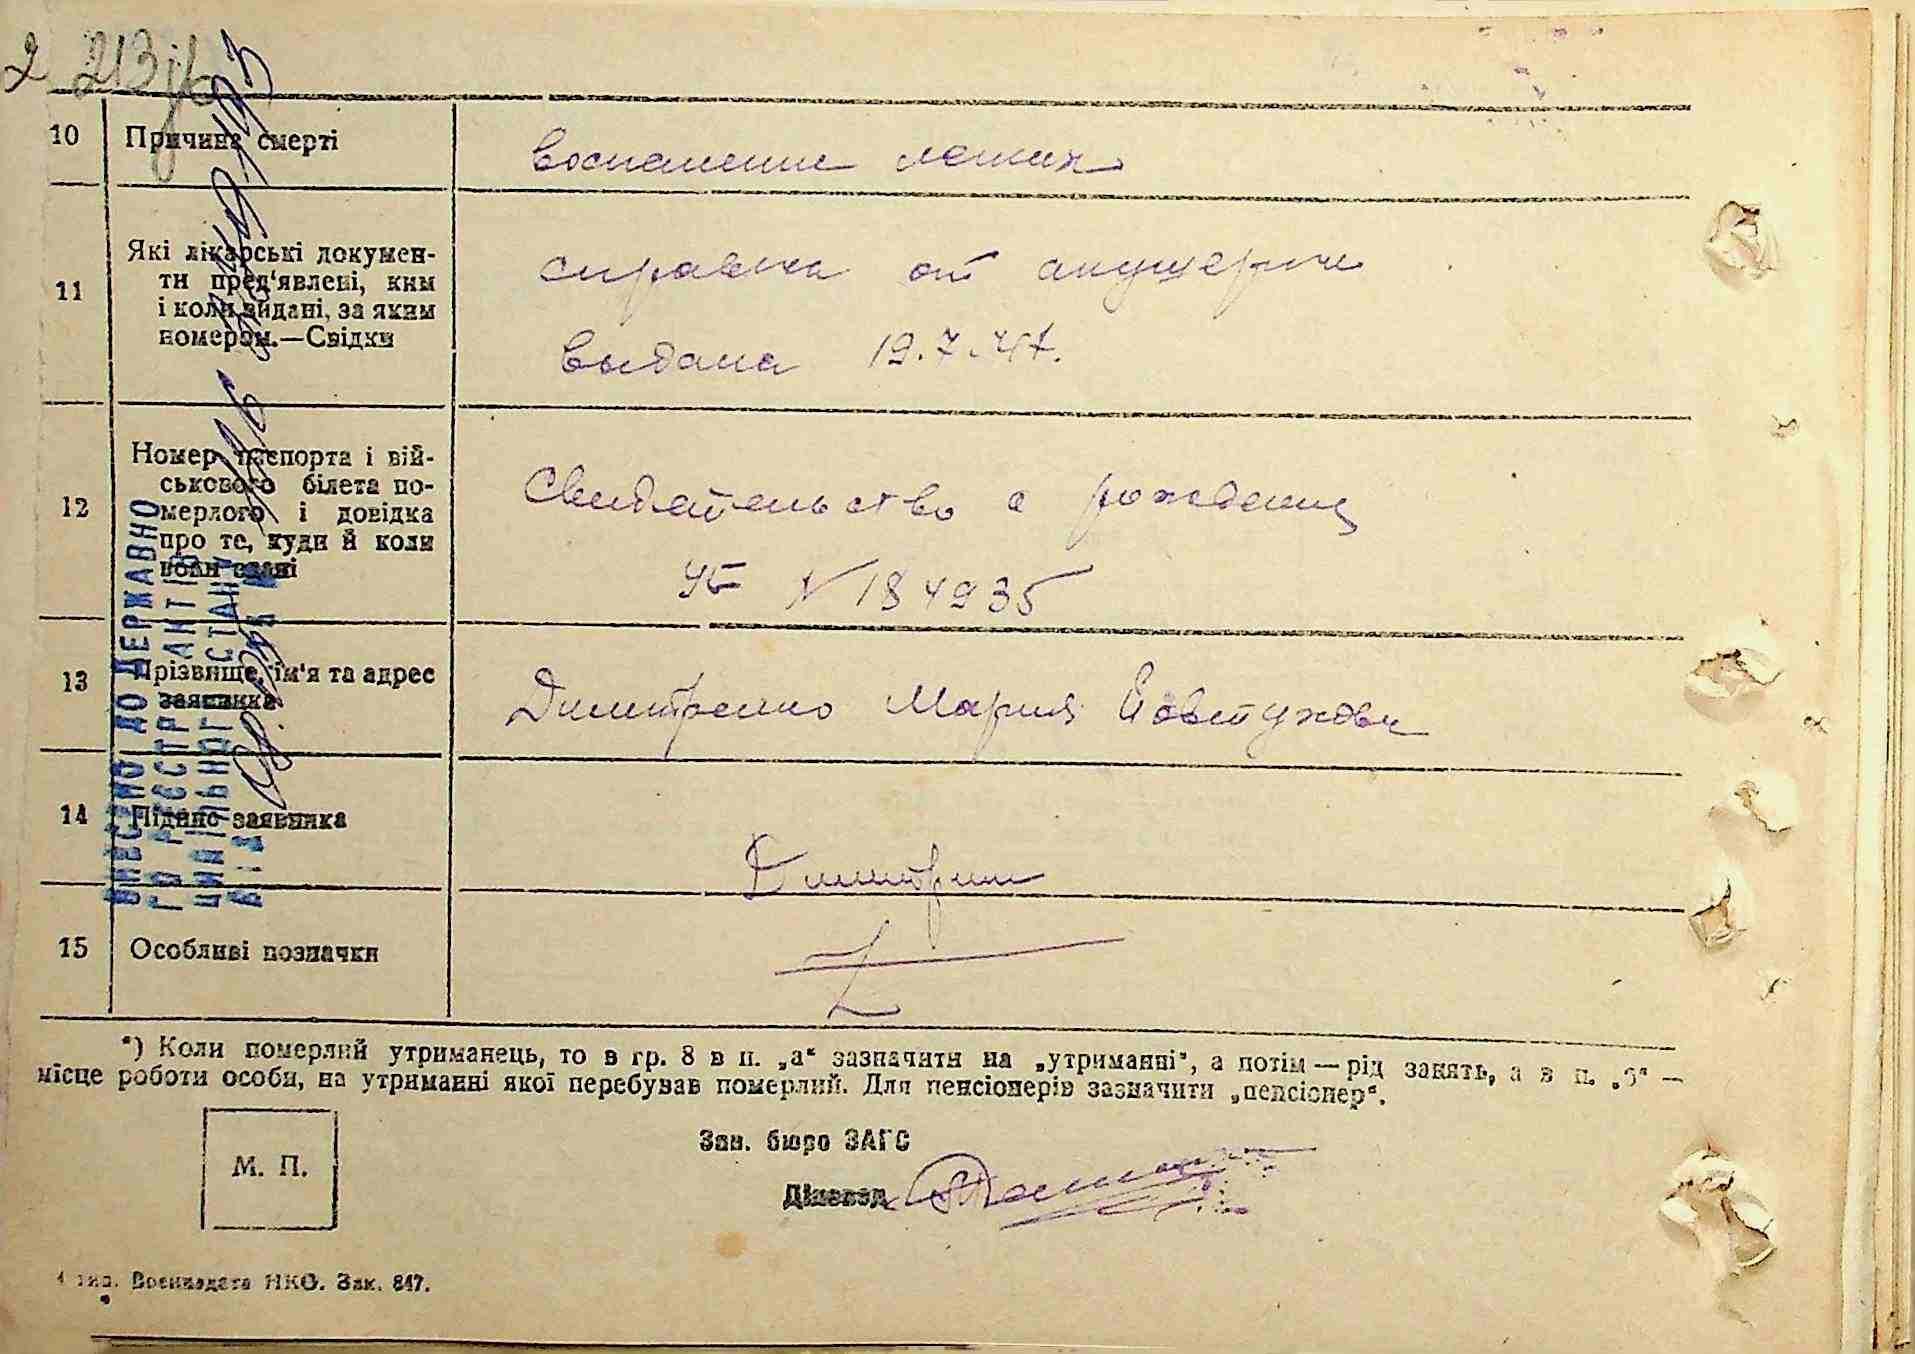 2 213
10 Причина смерті воспаление легких
11 Які лікарські докумен-
ти пред'явлені, ким
і коли видані, за яким
номером.—Свідки
справка от акушерки
выдана 19.7.47.
12 Номер паспорта і вій-
ськового білета по-
мерлого і довідка
про те, куди й коли
вони здані
Свидетельство о рождении
УБ N 184935
13 Прізвище, ім'я та адрес
заявника
Дмитренко Мария
14 Підпис заявника
15 Особливі позначки
ВНЕСЕНО ДО ДЕРЖАВНО
ГО РЕЄСТР АКТІВ
ЦИВІЛЬНОГ СТАНУ
ВІД
*) Коли померлий утриманець, то в гр. 8 в п. „а“ зазначити на „утриманні“, а потім — рід занять, а в п. „б“ —
місце роботи особи, на утриманні якої перебував померлий. Для пенсіонерів зазначити „пенсіонер“.
М. П.
Зав. бюро ЗАГС
Діловод
4 тип. Воениздата НКО. Зак. 847.